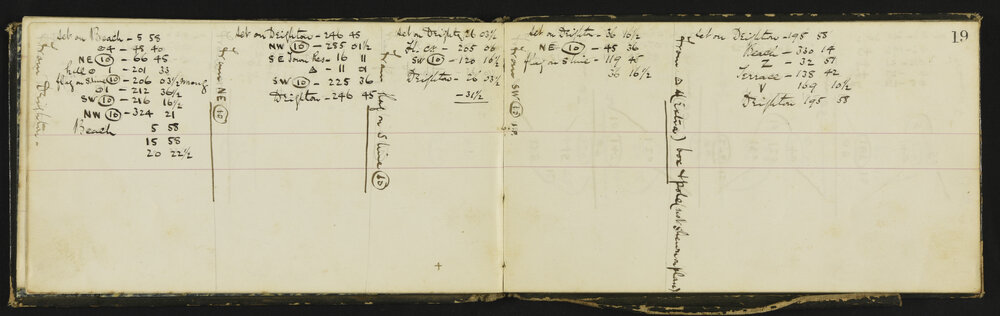 19
from Deighton -
Set on Beach - 5 58
⊙4 - 48 40
NE (10) - 66 45
⊙ 1 - 201 33
flag on S line (10) - 206 03½ wrong
⊙1 - 212 36½
SW (10) - 216 16½
NW (10) - 324 21
Beach 5 58
15 58
20 22½
from NE (10)
Set on Deighton - 246 45
NW (10) - 285 01½
SE Town Res - 16 11
Δ - 11 01
SW (10) - 225 36
Deighton - 246 45
from flag on S line (10)
Set on Deighton 26 03½
205 06
SW (10) - 120 16½
Deighton - 26 03½
- 31½
from SW (10) I.P.
Set on Deighton - 36 16½
NE (10) - 45 36
flag on S line - 119 45
36 16½
from Δ A (extra) box & pole (not shewn on plan)
Set on Deighton - 195 58
Beach - 330 14
Z - 32 57
Terrace - 138 42
V 169 10½
Deighton 195 58